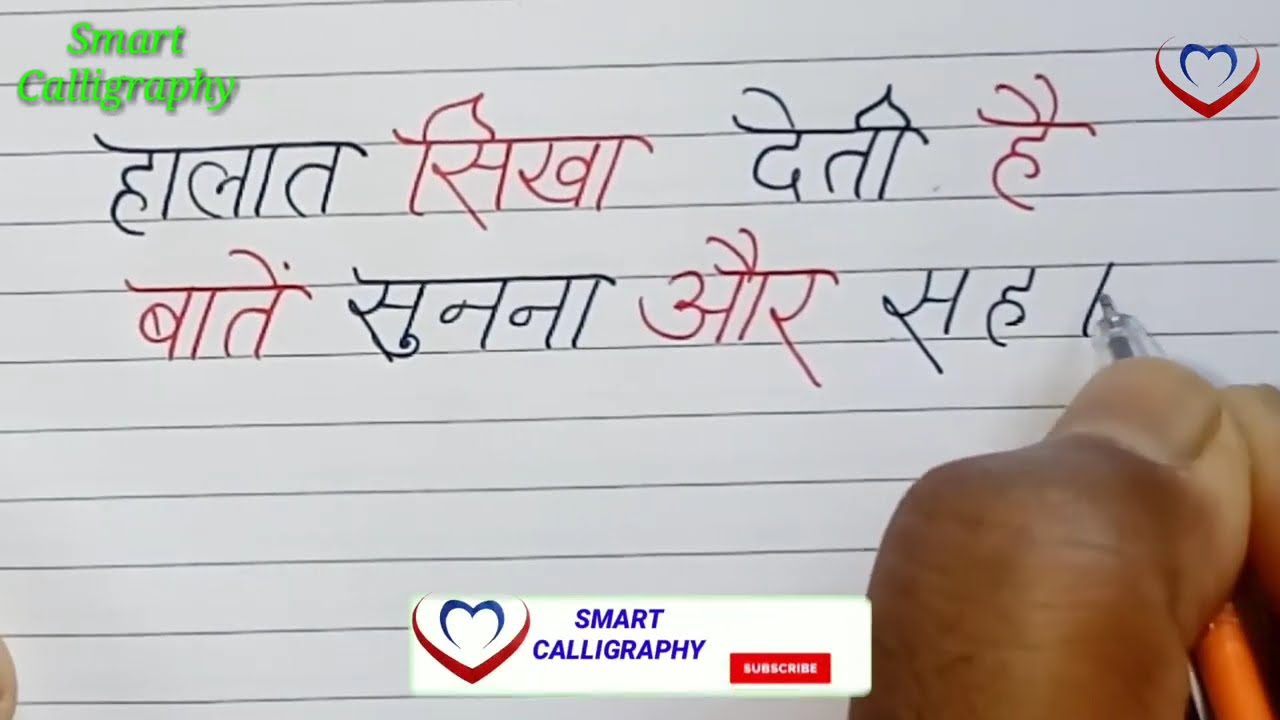 Smart
Calligraphy
हालात सिखा देती है
बातें सुनना और सह
SMART
CALLIGRAPHY
SUBSCRIBE